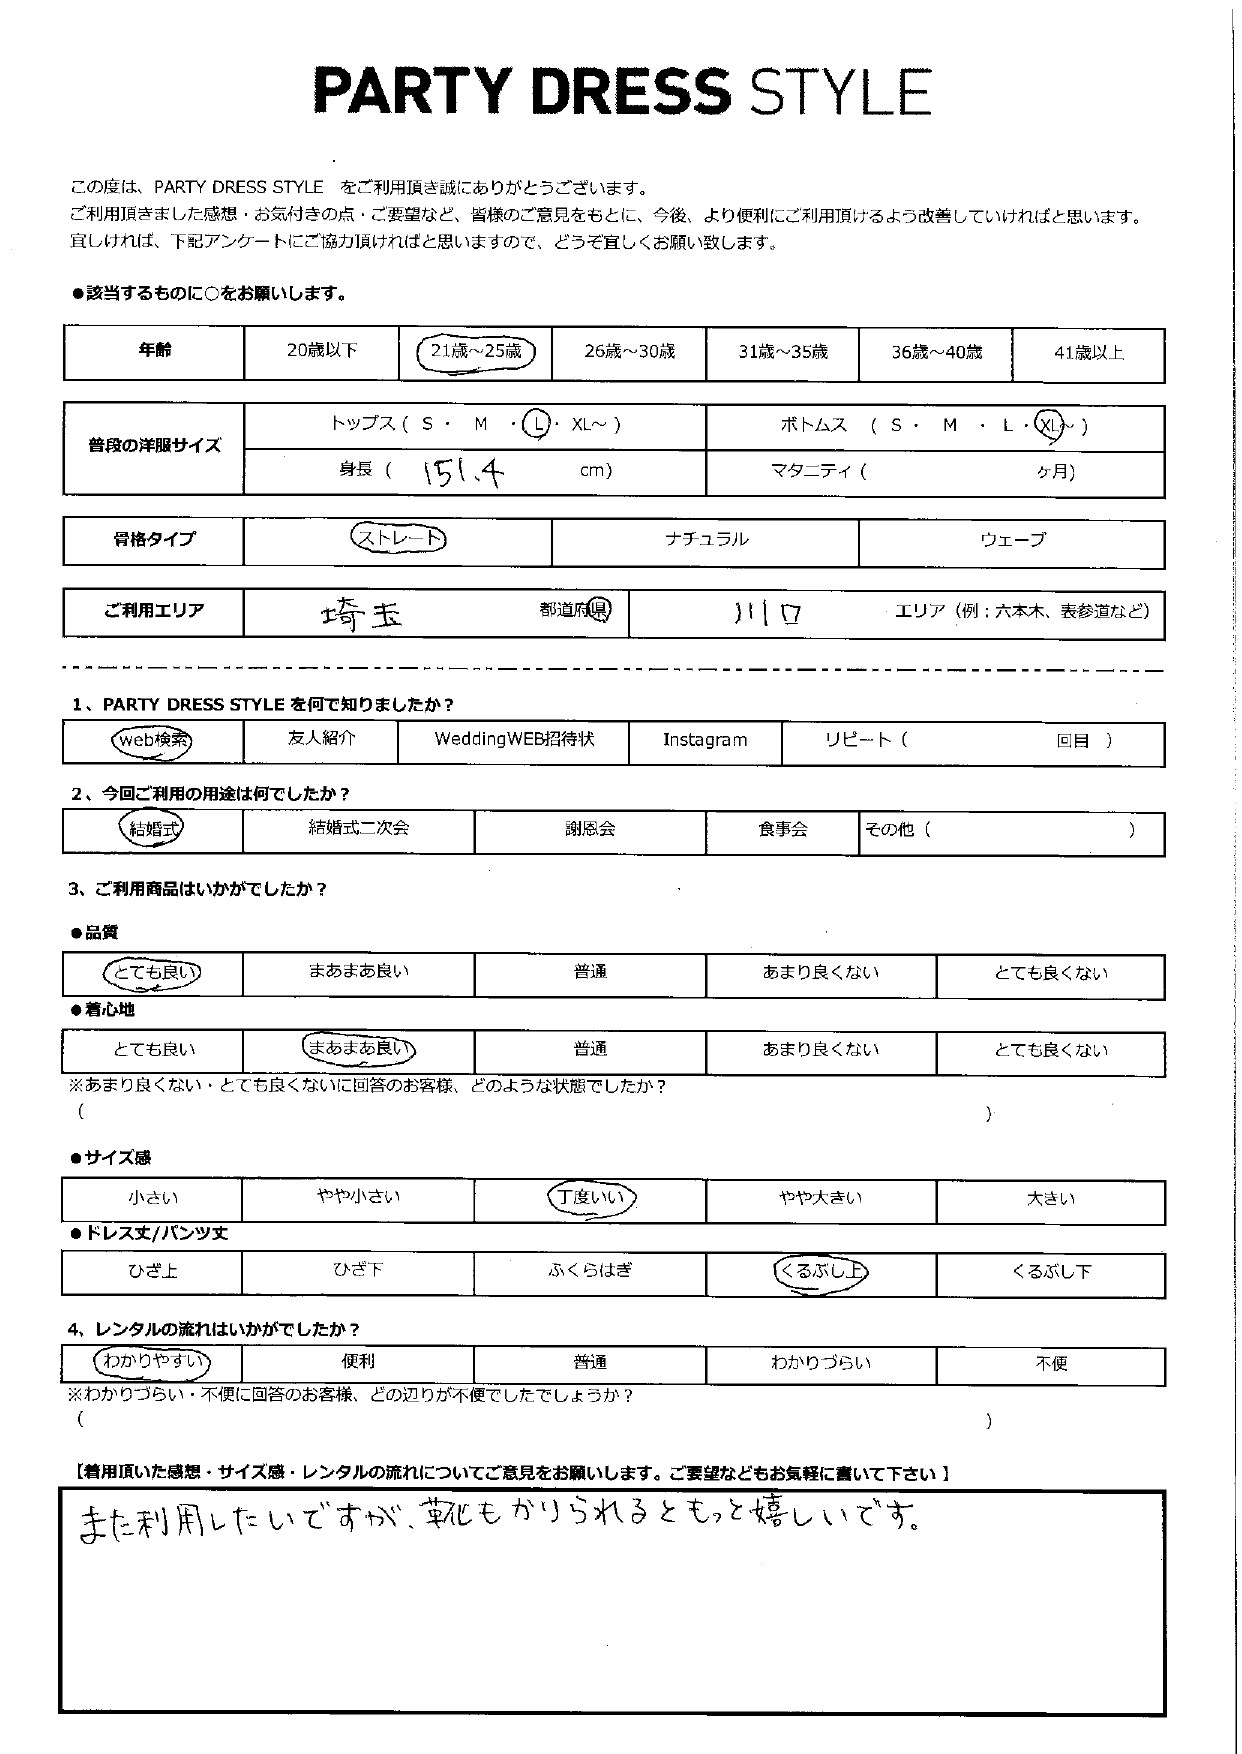 PARTY DRESS STYLE
この度は、PARTY DRESS STYLE をご利用頂き誠にありがとうございます。
ご利用頂きました感想・お気付きの点・ご要望など、皆様のご意見をもとに、今後、より便利にご利用頂けるよう改善していければと思います。
宜しければ、下記アンケートにご協力頂ければと思いますので、どうぞ宜しくお願い致します。
●該当するものに○をお願いします。
年齢 20歳以下 21歳～25歳 26歳～30歳 31歳～35歳 36歳～40歳 41歳以上
普段の洋服サイズ トップス ( S ・ M ・ L ・ XL～ ) ボトムス ( S ・ M ・ L ・ XL～ )
身長 ( 151.4 cm) マタニティ ( ヶ月)
骨格タイプ ストレート ナチュラル ウェーブ
ご利用エリア 埼玉 都道府県 川口 エリア（例：六本木、表参道など）
1、PARTY DRESS STYLE を何で知りましたか？
web検索 友人紹介 WeddingWEB招待状 Instagram リピート ( 回目 )
2、今回ご利用の用途は何でしたか？
結婚式 結婚式二次会 謝恩会 食事会 その他 ( )
3、ご利用商品はいかがでしたか？
●品質
とても良い まあまあ良い 普通 あまり良くない とても良くない
●着心地
とても良い まあまあ良い 普通 あまり良くない とても良くない
※あまり良くない・とても良くないに回答のお客様、どのような状態でしたか？
( )
●サイズ感
小さい やや小さい 丁度いい やや大きい 大きい
●ドレス丈/パンツ丈
ひざ上 ひざ下 ふくらはぎ くるぶし上 くるぶし下
4、レンタルの流れはいかがでしたか？
わかりやすい 便利 普通 わかりづらい 不便
※わかりづらい・不便に回答のお客様、どの辺りが不便でしたでしょうか？
( )
【着用頂いた感想・サイズ感・レンタルの流れについてご意見をお願いします。ご要望などもお気軽に書いて下さい】
また利用したいですが、靴もかりられるともっと嬉しいです。